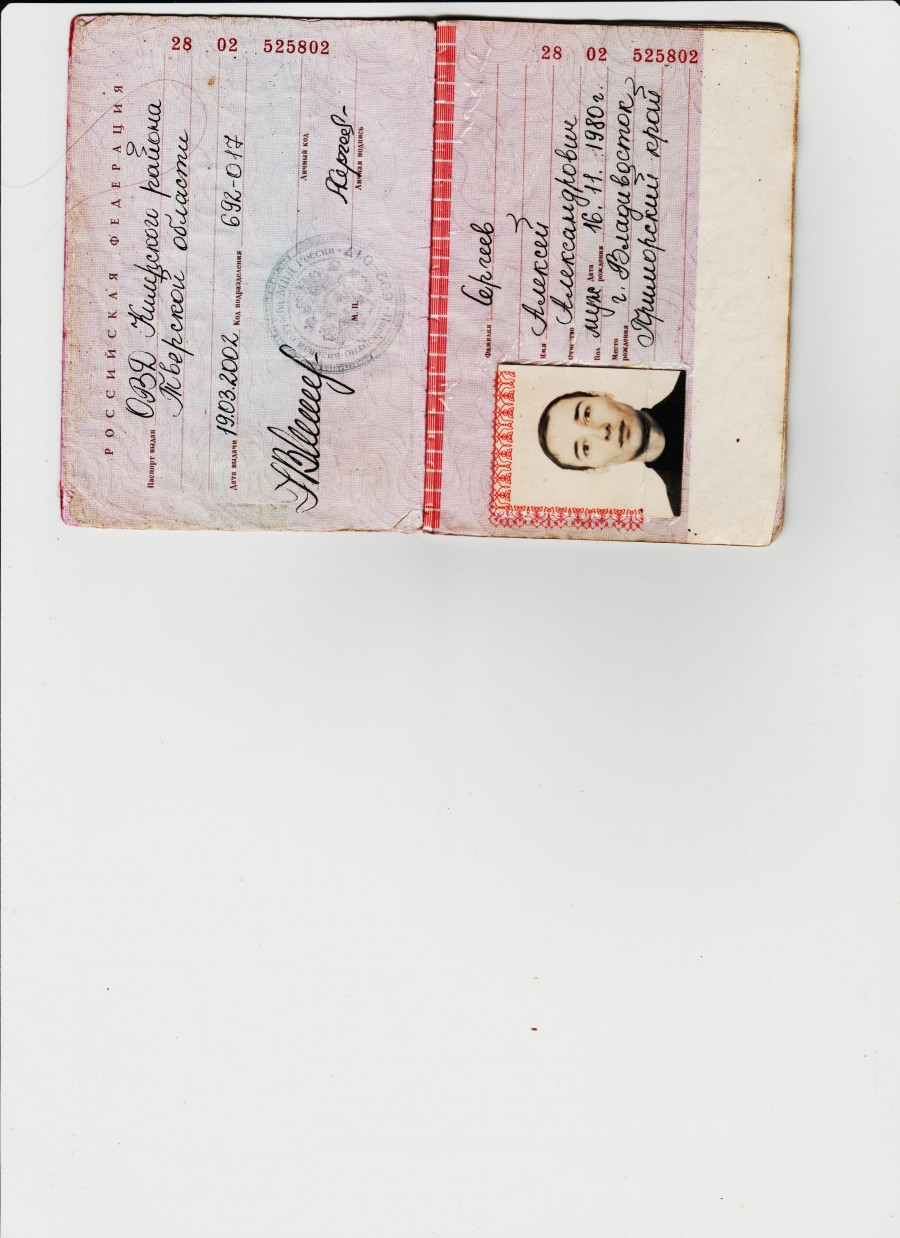 28 02 525802
РОССИЙСКАЯ ФЕДЕРАЦИЯ
Паспорт выдан ОВД Кимрского района
Тверской области
Дата выдачи 19.03.2002 Код подразделения 692-017
Личный код
Личная подпись
М.П.
28 02 525802
Фамилия Сергеев
Имя Алексей
Отчество Александрович
Пол муж Дата рождения 16.11.1980г.
Место рождения г. Владивосток
Приморский край